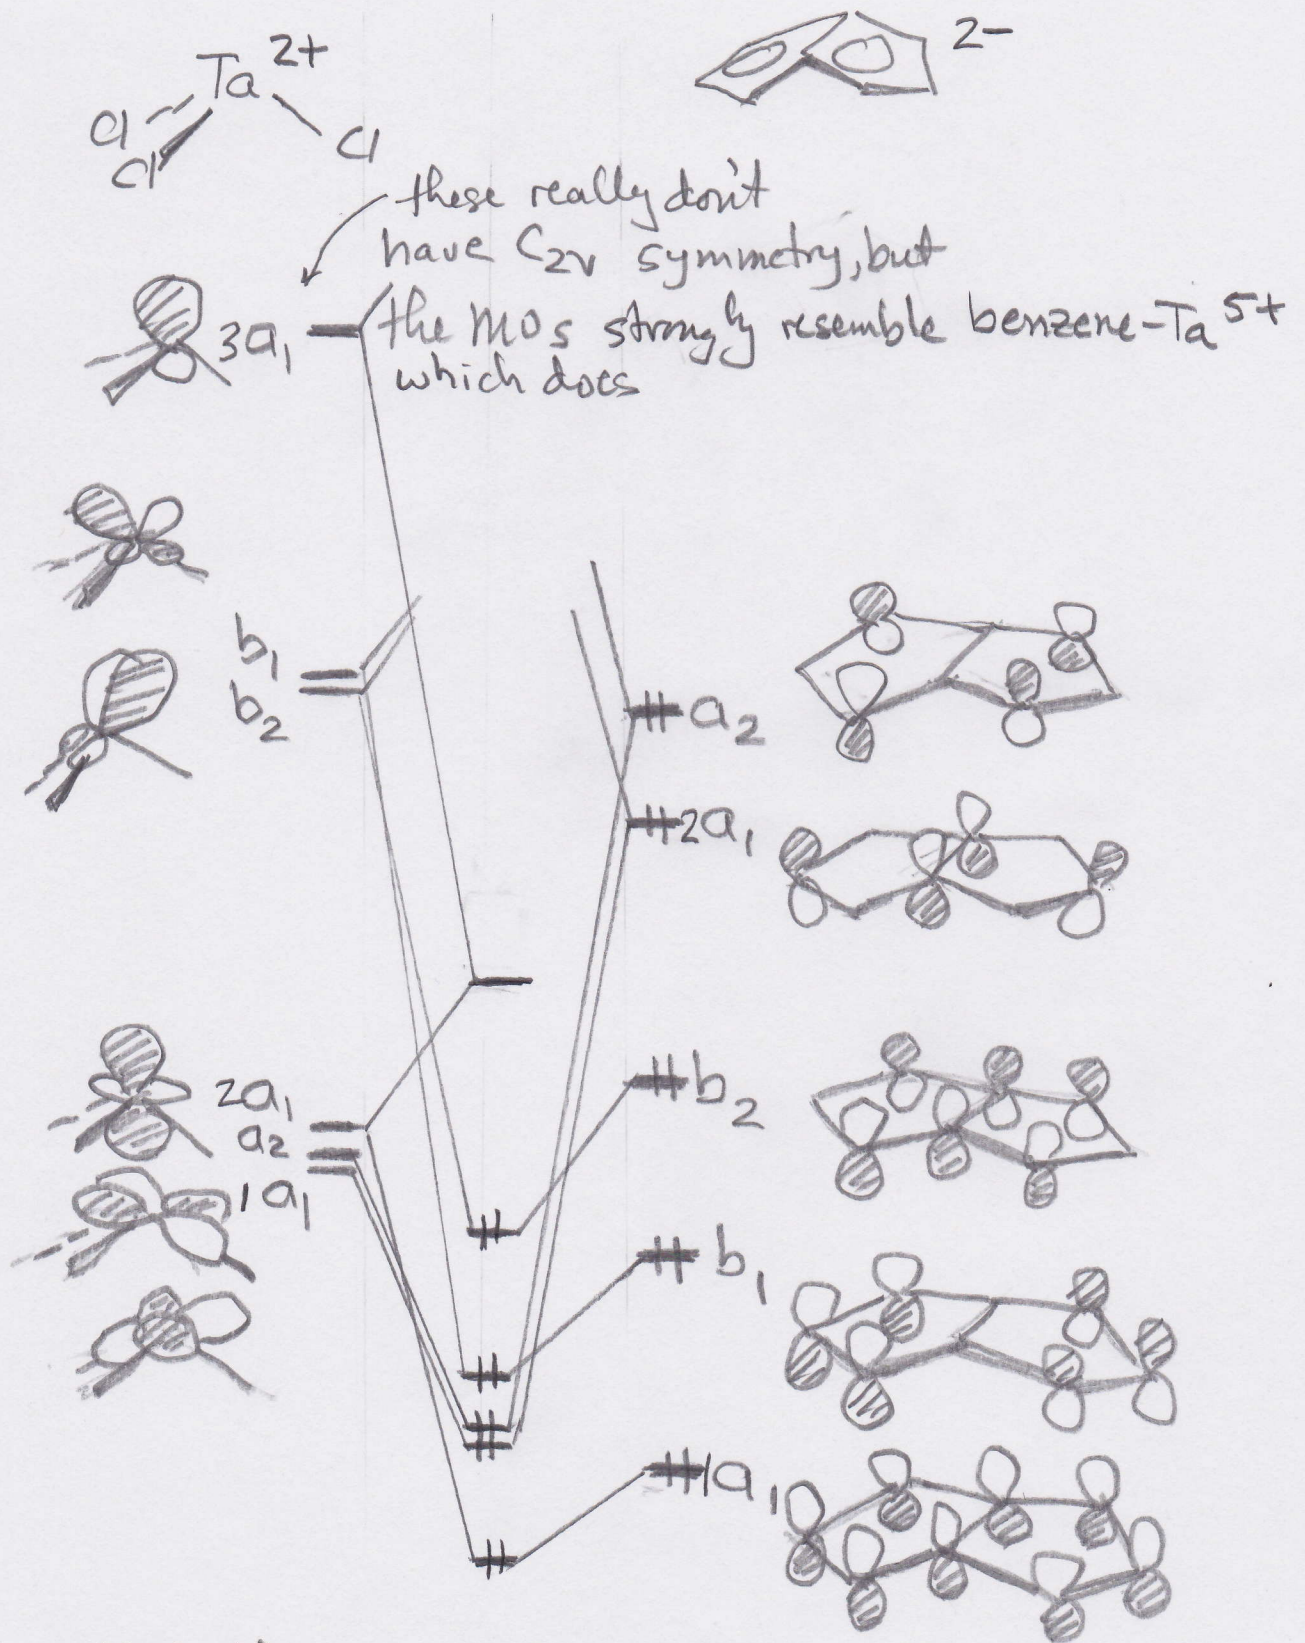 Ta 2+
Cl
Cl
Cl
2-
these really don't
have C2v symmetry, but
the MOs strongly resemble benzene-Ta 5+
which does
3a1
b1
b2
a2
2a1
2a1
a2
1a1
b2
b1
1a1